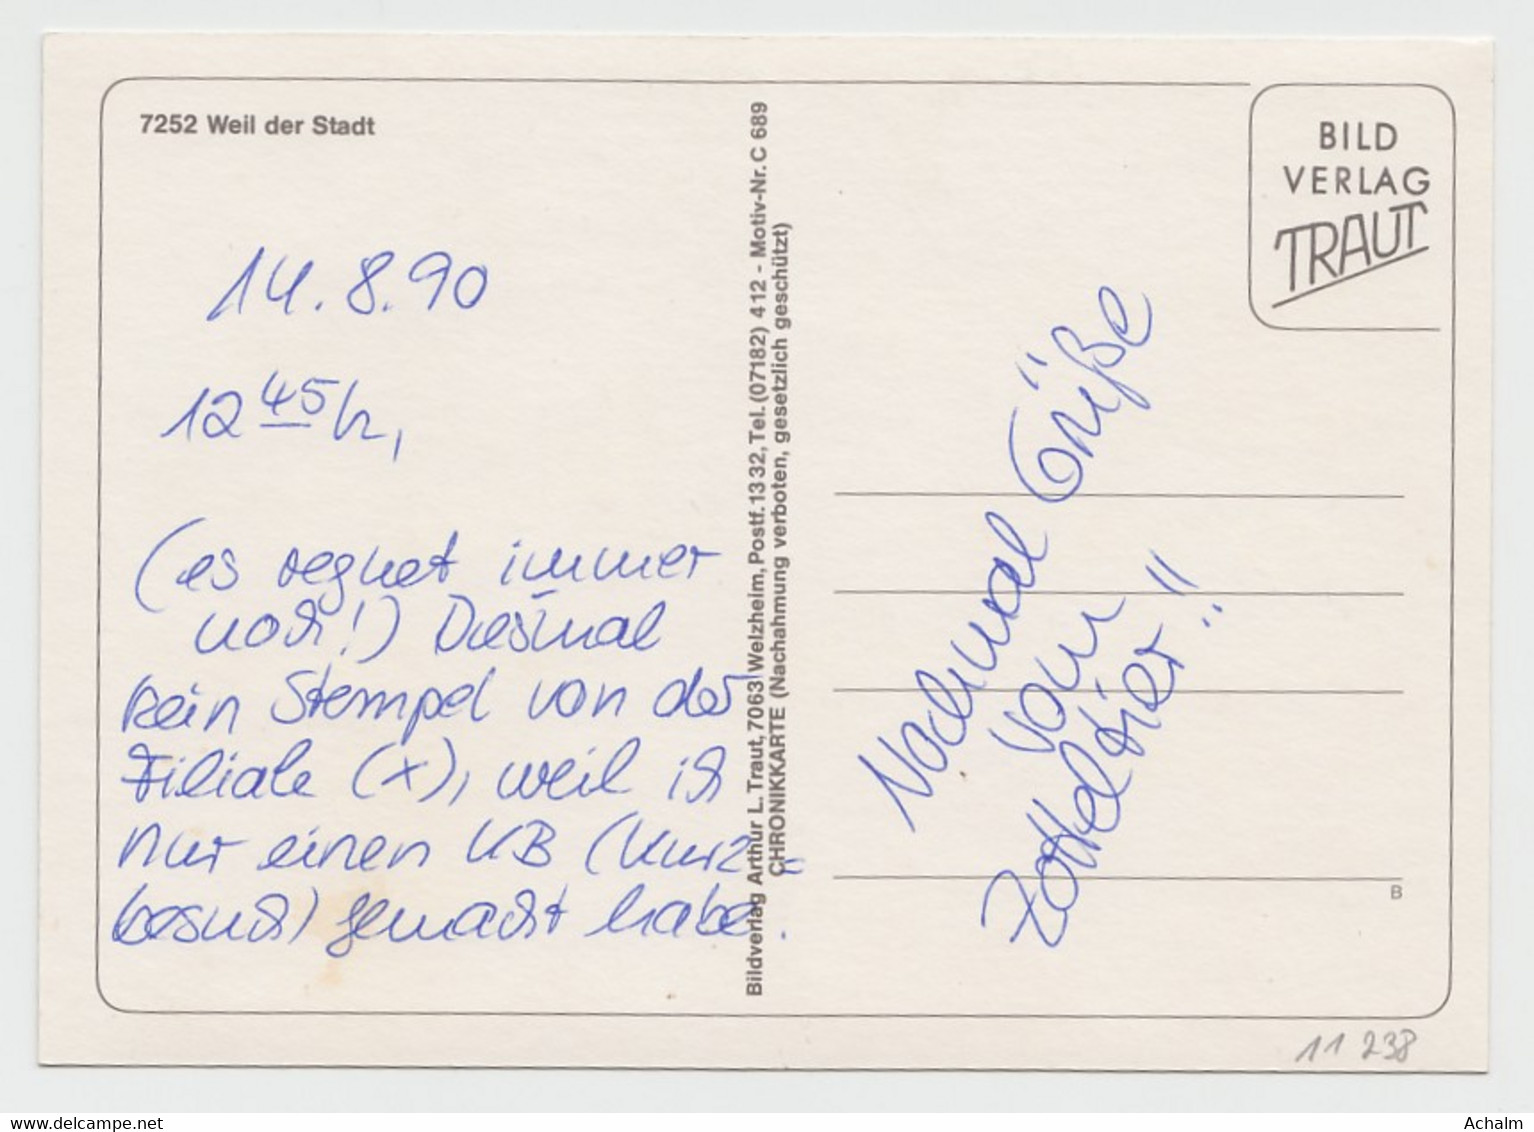 7252 Weil der Stadt
14.8.90
12 45 h,
(es regnet immer
noch!) Diesmal
kein Stempel von der
Filiale (x), weil ich
nur einen KB (Kurz=
besuch) gemacht habe.
Bildverlag Arthur L. Traut, 7063 Welzheim, Postf. 1332, Tel. (07182) 412 - Motiv-Nr. C 689
CHRONIKKARTE (Nachahmung verboten, gesetzlich geschützt)
BILD
VERLAG
TRAUT
Nochmal Grüße
vom
Zotteltier!!
B
11 238
delcampe.net
Achalm